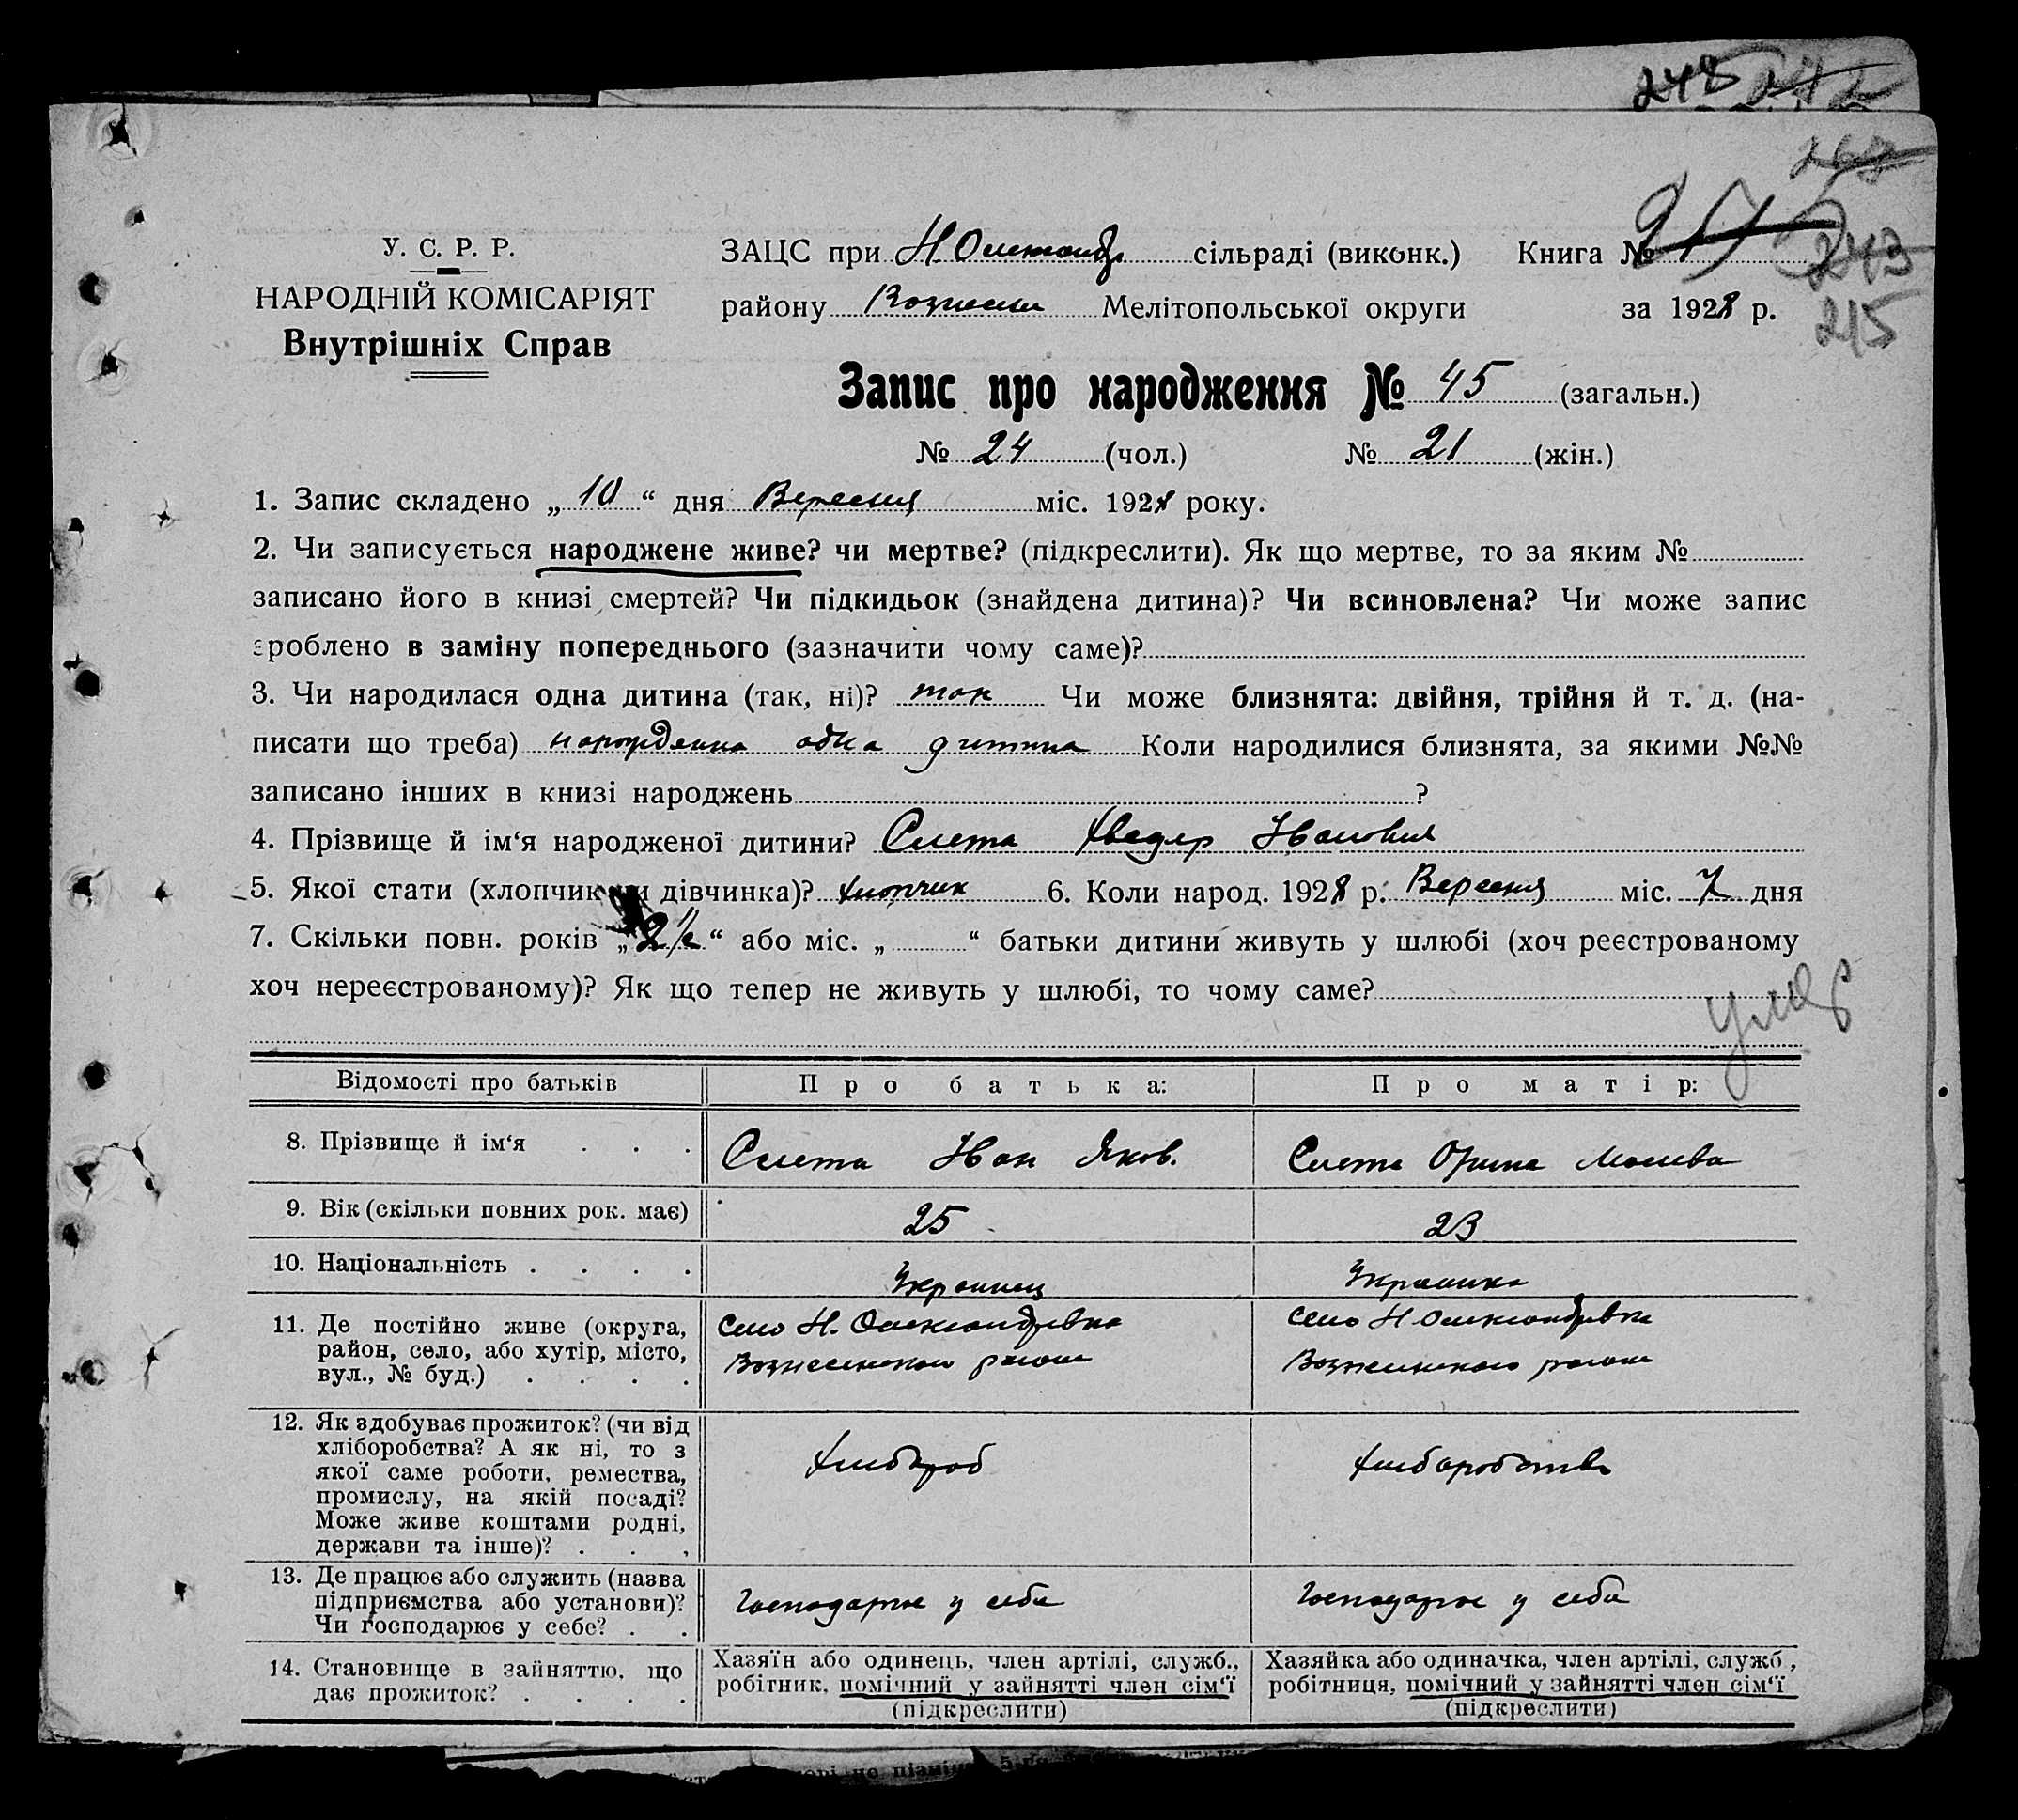 248 242
268
У. С. Р. Р.
НАРОДНІЙ КОМІСАРІЯТ
Внутрішніх Справ
ЗАЦС при Н Олександр сільраді (виконк.) Книга №
243
району Вознесен Мелітопольської округи за 1928 р.
215
Запис про народження № 45 (загальн.)
№ 24 (чол.) № 21 (жін.)
1. Запис складено „10“ дня Вересня міс. 1928 року.
2. Чи записується народжене живе? чи мертве? (підкреслити). Як що мертве, то за яким №
записано його в книзі смертей? Чи підкидьок (знайдена дитина)? Чи всиновлена? Чи може запис
зроблено в заміну попереднього (зазначити чому саме)?
3. Чи народилася одна дитина (так, ні)? так Чи може близнята: двійня, трійня й т. д. (на-
писати що треба) народжена одна дитина Коли народилися близнята, за якими №№
записано інших в книзі народжень ?
4. Прізвище й ім‘я народженої дитини? Сиета Хведір Іванович
5. Якої стати (хлопчик чи дівчинка)? хлопчик 6. Коли народ. 1928 р. Вересня міс. 7 дня
7. Скільки повн. років „2 1/2“ або міс. „ “ батьки дитини живуть у шлюбі (хоч реєстрованому
хоч нереєстрованому)? Як що тепер не живуть у шлюбі, то чому саме?
умер
Відомості про батьків Про батька: Про матір:
8. Прізвище й ім‘я . . . Сиета Іван Яков. Сиета Орина
9. Вік (скільки повних рок. має) 25 23
10. Національність . . . . Українец Українка
11. Де постійно живе (округа,
район, село, або хутір, місто,
вул., № буд.) . . . .
Село Н. Олександрівка
Вознесенського району
Село Н Олександрівка
Вознесенського району
12. Як здобуває прожиток? (чи від
хліборобства? А як ні, то з
якої саме роботи, ремества,
промислу, на якій посаді?
Може живе коштами родні,
держави та інше)? . . .
хлібороб
хліборобство
13. Де працює або служить (назва
підприємства або установи)?
Чи господарює у себе? . .
Господарює у себе
Господарює у себе
14. Становище в зайняттю, що
дає прожиток? . . . .
Хазяїн або одинець, член артілі, служб.,
робітник, помічний у зайнятті член сім‘ї
(підкреслити)
Хазяйка або одиначка, член артілі, служб.,
робітниця, помічний у зайнятті член сім‘ї
(підкреслити)